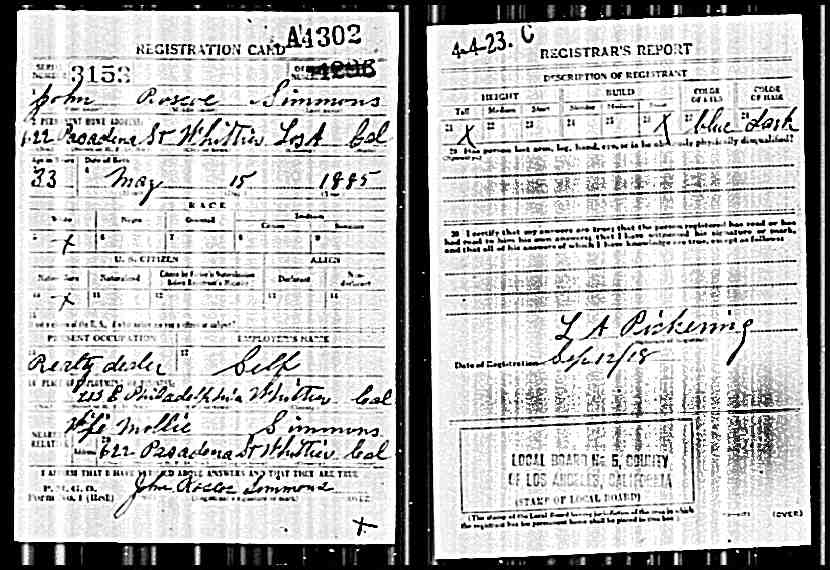 REGISTRATION CARD A4302
SERIAL NUMBER 3153 ORDER NUMBER 4296
John Roscoe Simmons
PERMANENT HOME ADDRESS:
622 Pasadena St Whittier Los A Cal
Age in Years Date of Birth
33 May 15 1885
RACE
White Negro Oriental Indian
Citizen Noncitizen
5 X 6 7 8 9
U. S. CITIZEN ALIEN
Native Born Naturalized Citizen by Father's Naturalization Before Registrant's Majority Declarant Non-declarant
10 X 11 12 13 14
15
If not a citizen of the U.S., of what nation are you a citizen or subject?
PRESENT OCCUPATION EMPLOYER'S NAME
Realty dealer 17 Self
PLACE OF EMPLOYMENT OR BUSINESS:
Philadelphia Whittier Cal
NEAREST RELATIVE
Wife Mollie Simmons
Address 622 Pasadena St Whittier Cal
I AFFIRM THAT I HAVE VERIFIED ABOVE ANSWERS AND THAT THEY ARE TRUE
P. M. G. O.
Form No. 1 (Red)
John Roscoe Simmons
4-4-23. C
REGISTRAR'S REPORT
DESCRIPTION OF REGISTRANT
HEIGHT BUILD COLOR OF EYES COLOR OF HAIR
Tall Medium Short Slender Medium Stout
21 X 22 23 24 25 X 27 blue 28 dark
29 Has person lost arm, leg, hand, eye, or is he obviously physically disqualified?
(Specify.)
30 I certify that my answers are true; that the person registered has read or has
had read to him his own answers; that I have witnessed his signature or mark,
and that all of his answers of which I have knowledge are true, except as follows:
L A Pickering
Date of Registration Sep 12/18
LOCAL BOARD No 5, COUNTY
OF LOS ANGELES, CALIFORNIA
(STAMP OF LOCAL BOARD)
(The stamp of the Local Board having jurisdiction of the area in which
the registrant has his permanent home shall be placed in this box.)
(OVER)